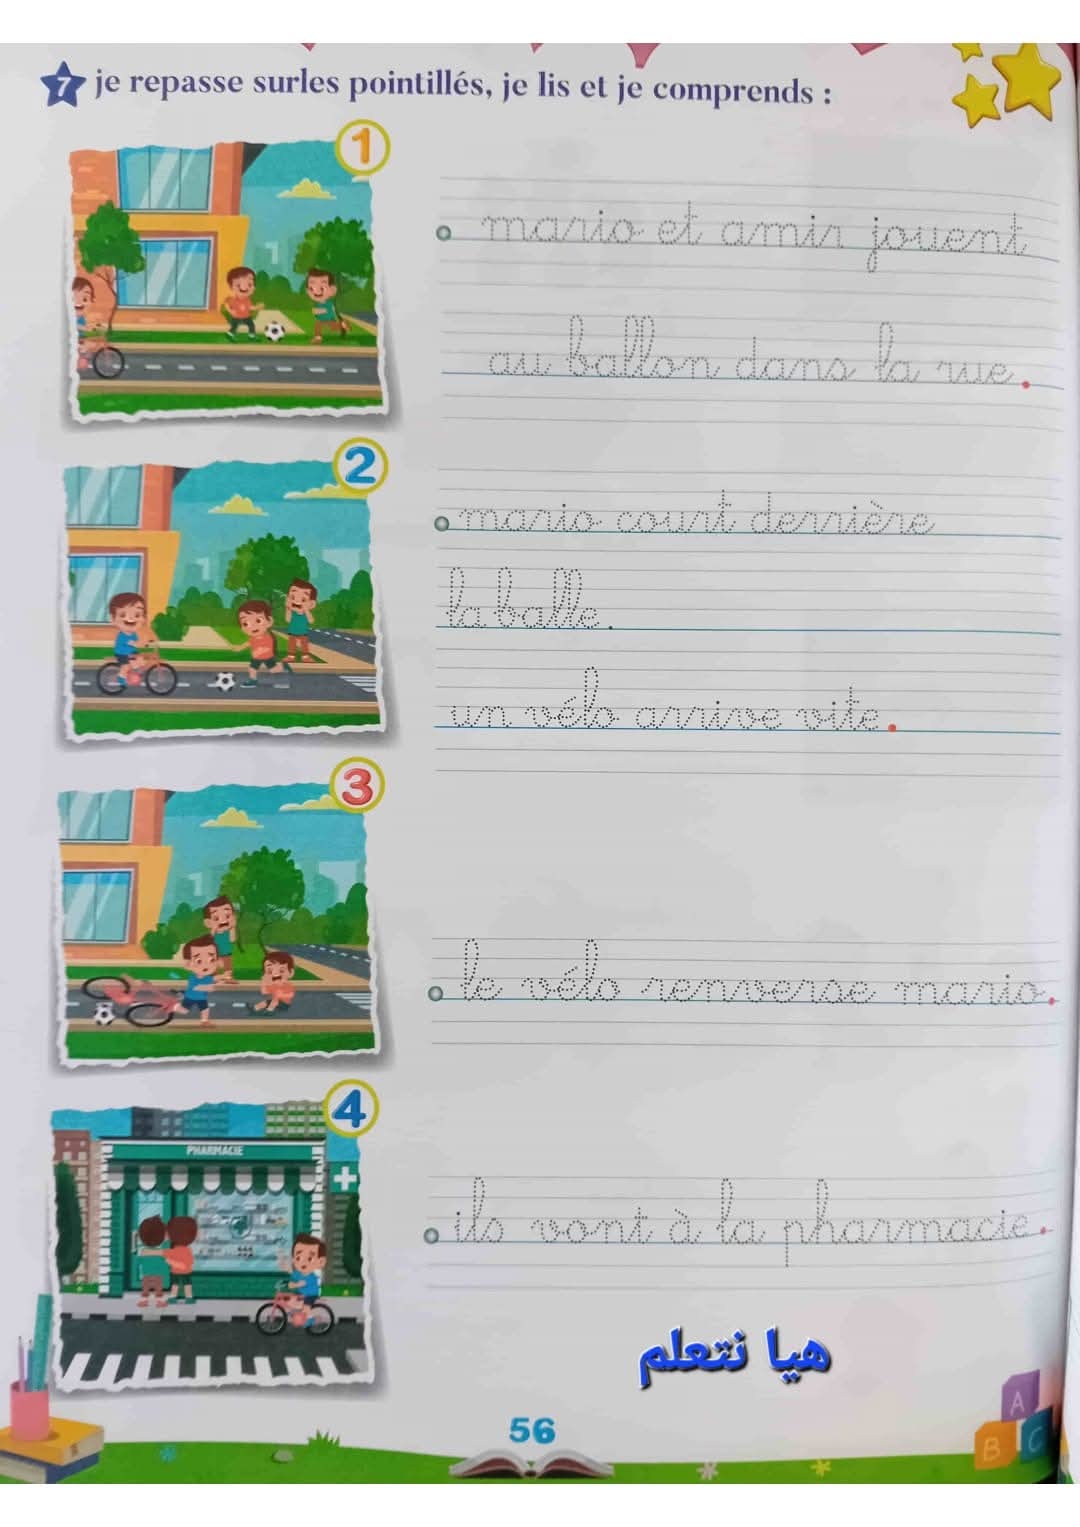 7 je repasse surles pointillés, je lis et je comprends :
1
mario et amir jouent
au ballon dans la rue.
2
mario court derrière
la balle.
un vélo arrive vite.
3
le vélo renverse mario.
4
PHARMACIE
ils vont à la pharmacie.
هيا نتعلم
56
A
B C